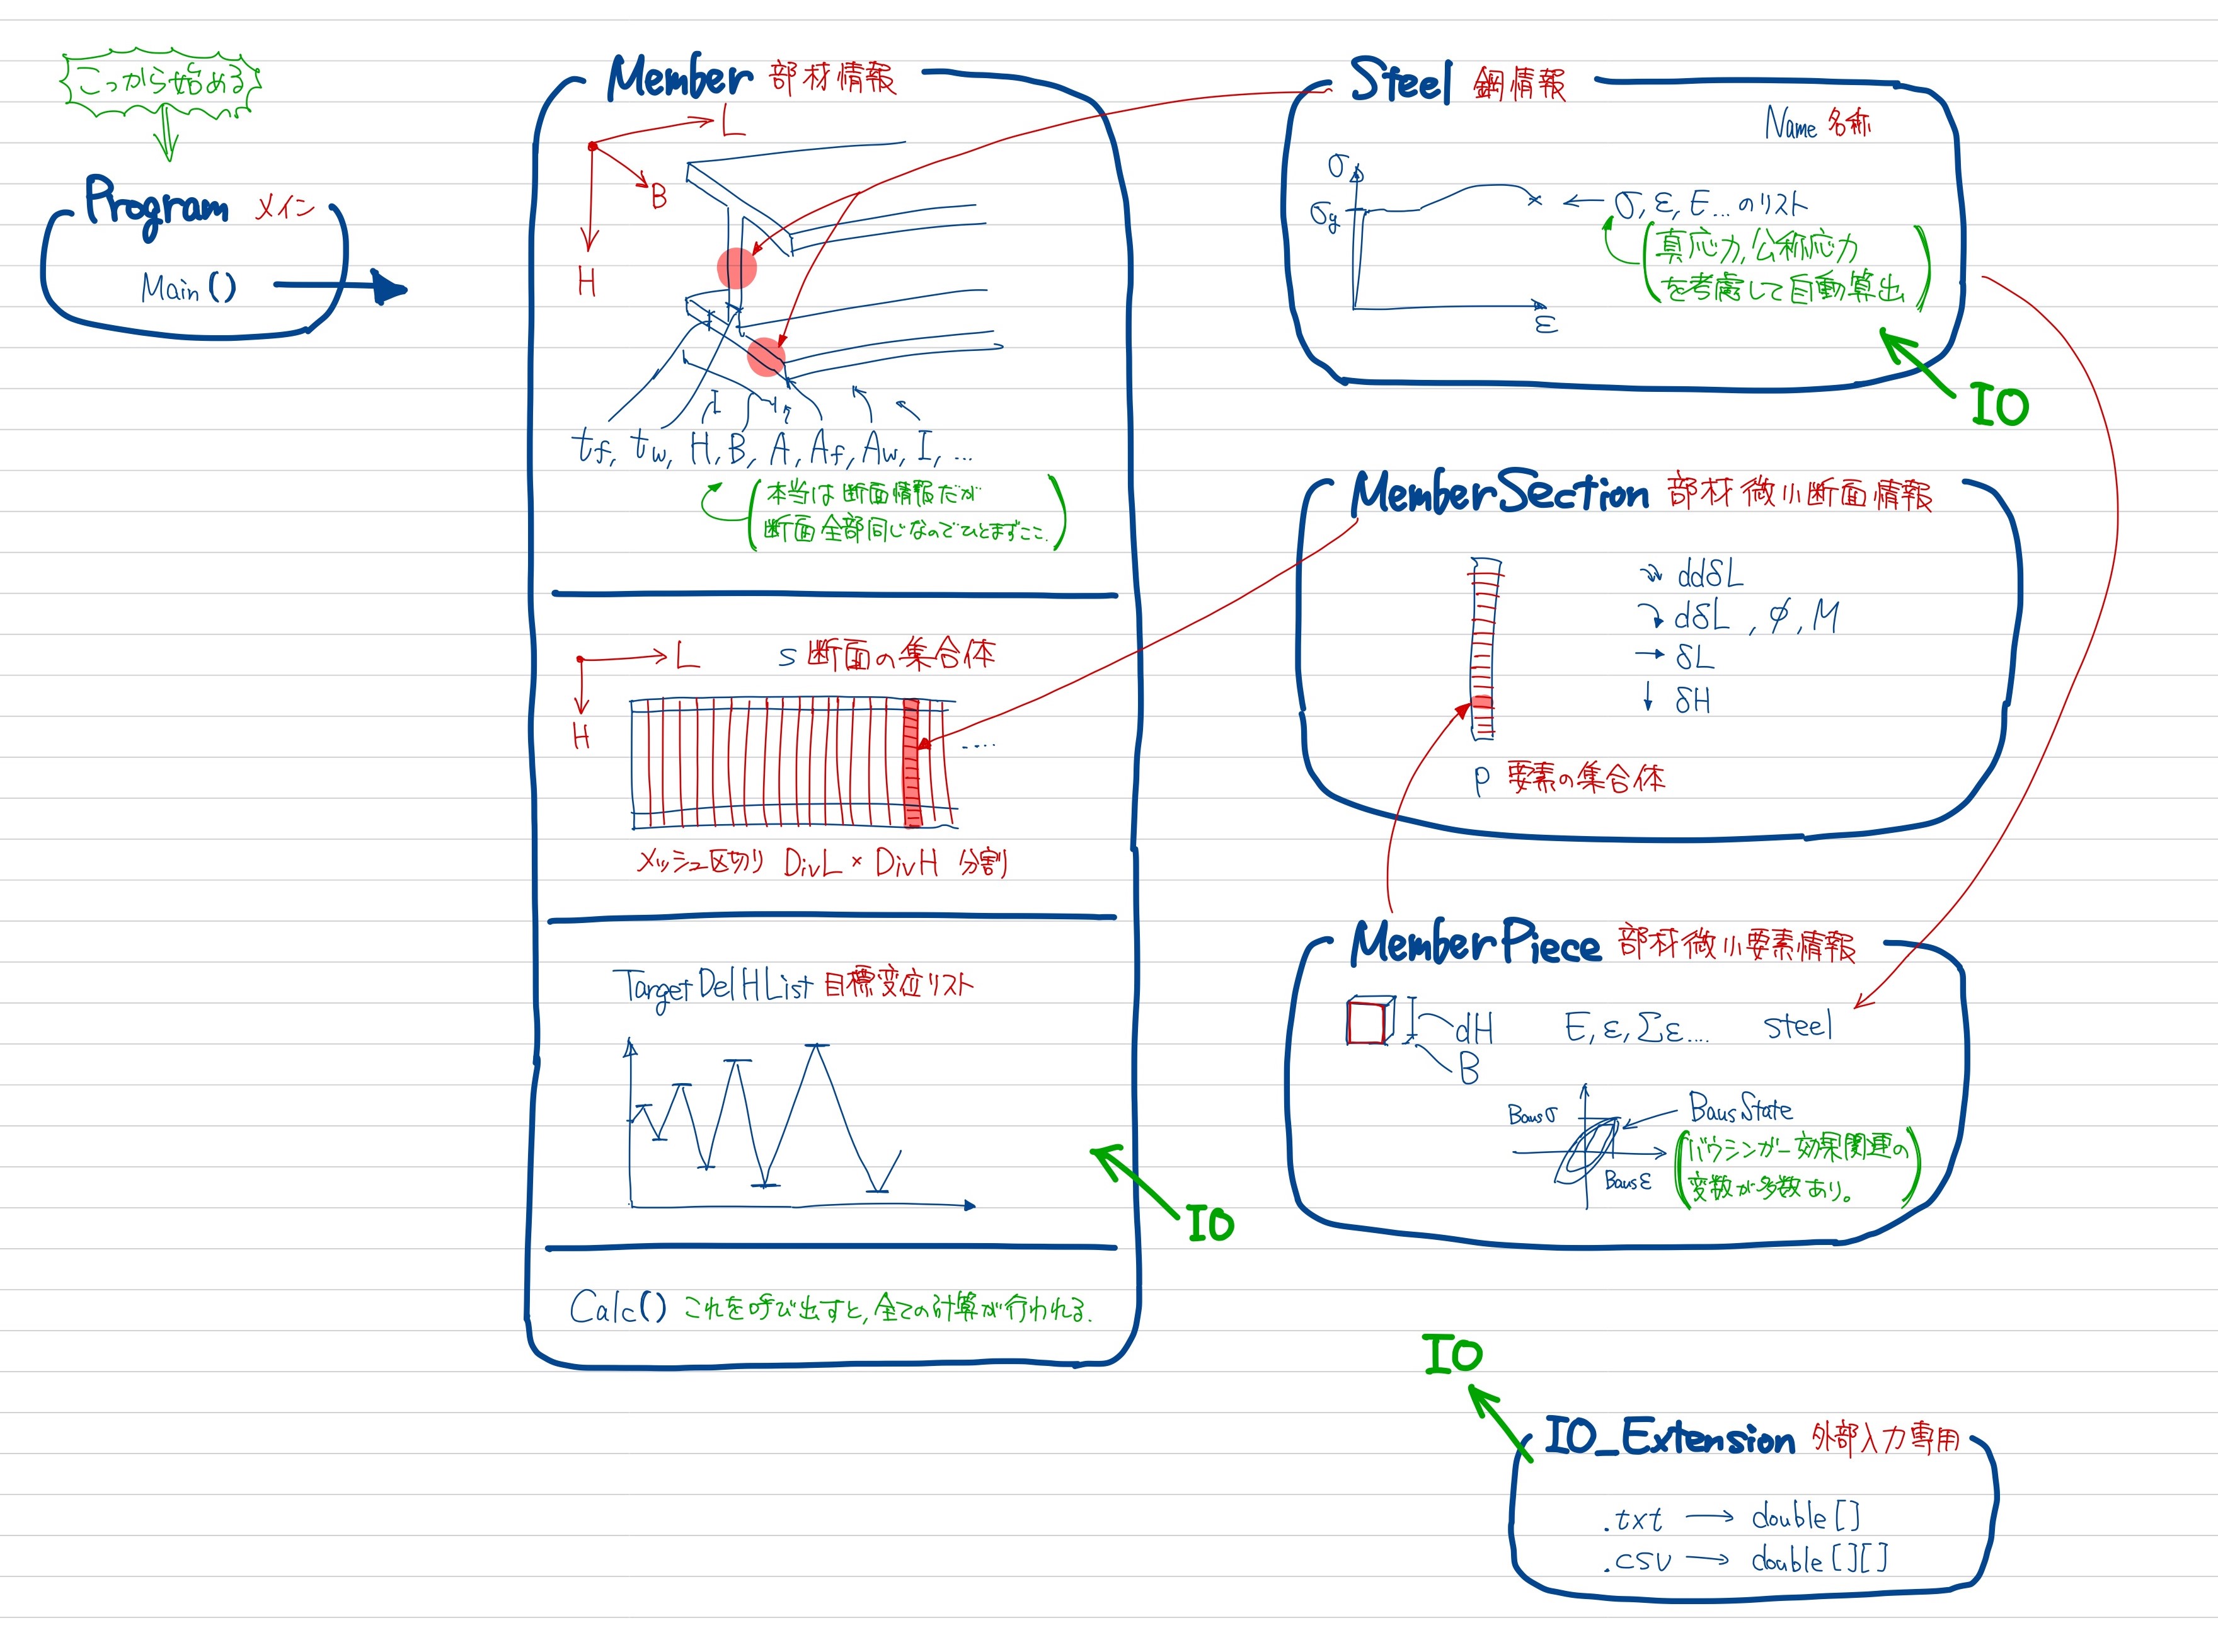 こっから始める
Program メイン
Main()
Member 部材情報
L
B
H
tf, tw, H, B, A, Af, Aw, I, …
(本当は断面情報だが
断面全部同じなのでひとまずここ.)
L
H
s 断面の集合体
....
メッシュ区切り DivL × DivH 分割
TargetDelHList 目標変位リスト
IO
Calc() これを呼び出すと, 全ての計算が行われる.
Steel 鋼情報
Name 名称
σ
σy
ε
← σ, ε, E… のリスト
(真応力, 公称応力
を考慮して自動算出)
IO
MemberSection 部材微小断面情報
ddδL
dδL , φ, M
→ δL
↓ δH
p 要素の集合体
MemberPiece 部材微小要素情報
dH
B
E, ε, Σε.... steel
Bausσ
BausState
Bausε
(バウシンガー効果関連の
変数が多数あり。)
IO
IO_Extension 外部入力専用
.txt → double[]
.csv → double[][]